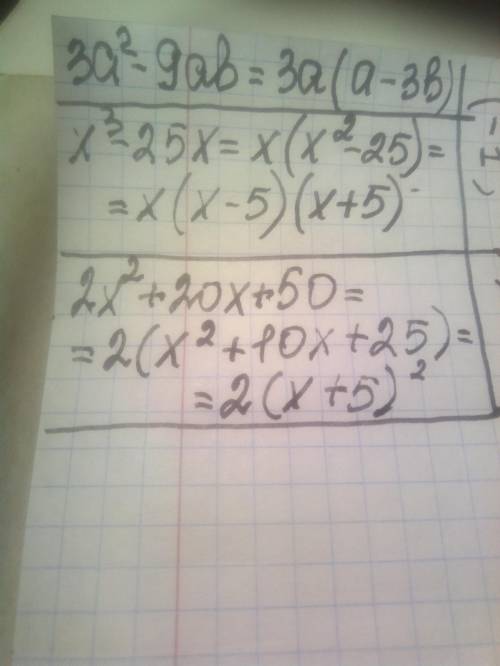 3a² - 9ab = 3a(a - 3b)
x³ - 25x = x(x² - 25) =
= x(x - 5)(x + 5)
2x² + 20x + 50 =
= 2(x² + 10x + 25) =
= 2(x + 5)²